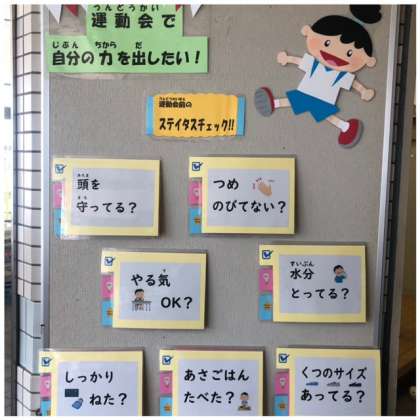 うんどうかい
運動会で
じぶん ちから だ
自分の力を出したい！
うんどうかいまえ
運動会前の
ステイタスチェック!!
あたま
頭を
まも
守ってる？
つめ
のびてない？
やる気
OK？
すいぶん
水分
とってる？
しっかり
ねた？
あさごはん
たべた？
くつのサイズ
あってる？